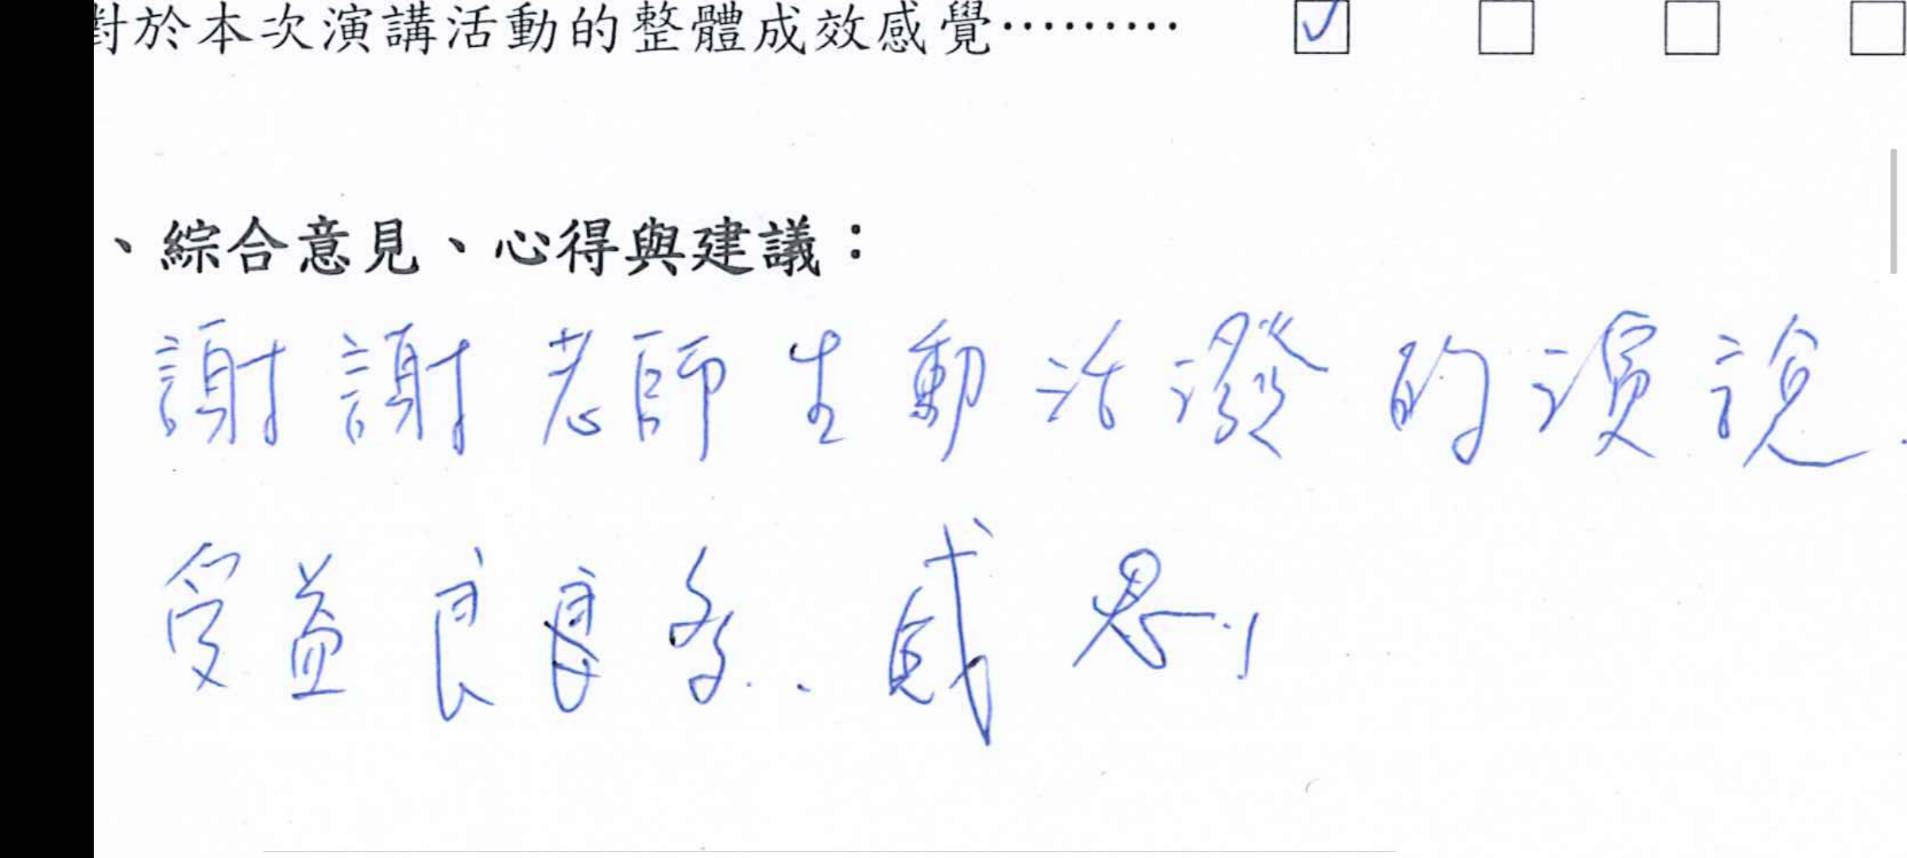 對於本次演講活動的整體成效感覺⋯⋯⋯ ☑ □ □ □
、綜合意見、心得與建議：
謝謝老師生動活潑的演說.
受益良良多..感恩!